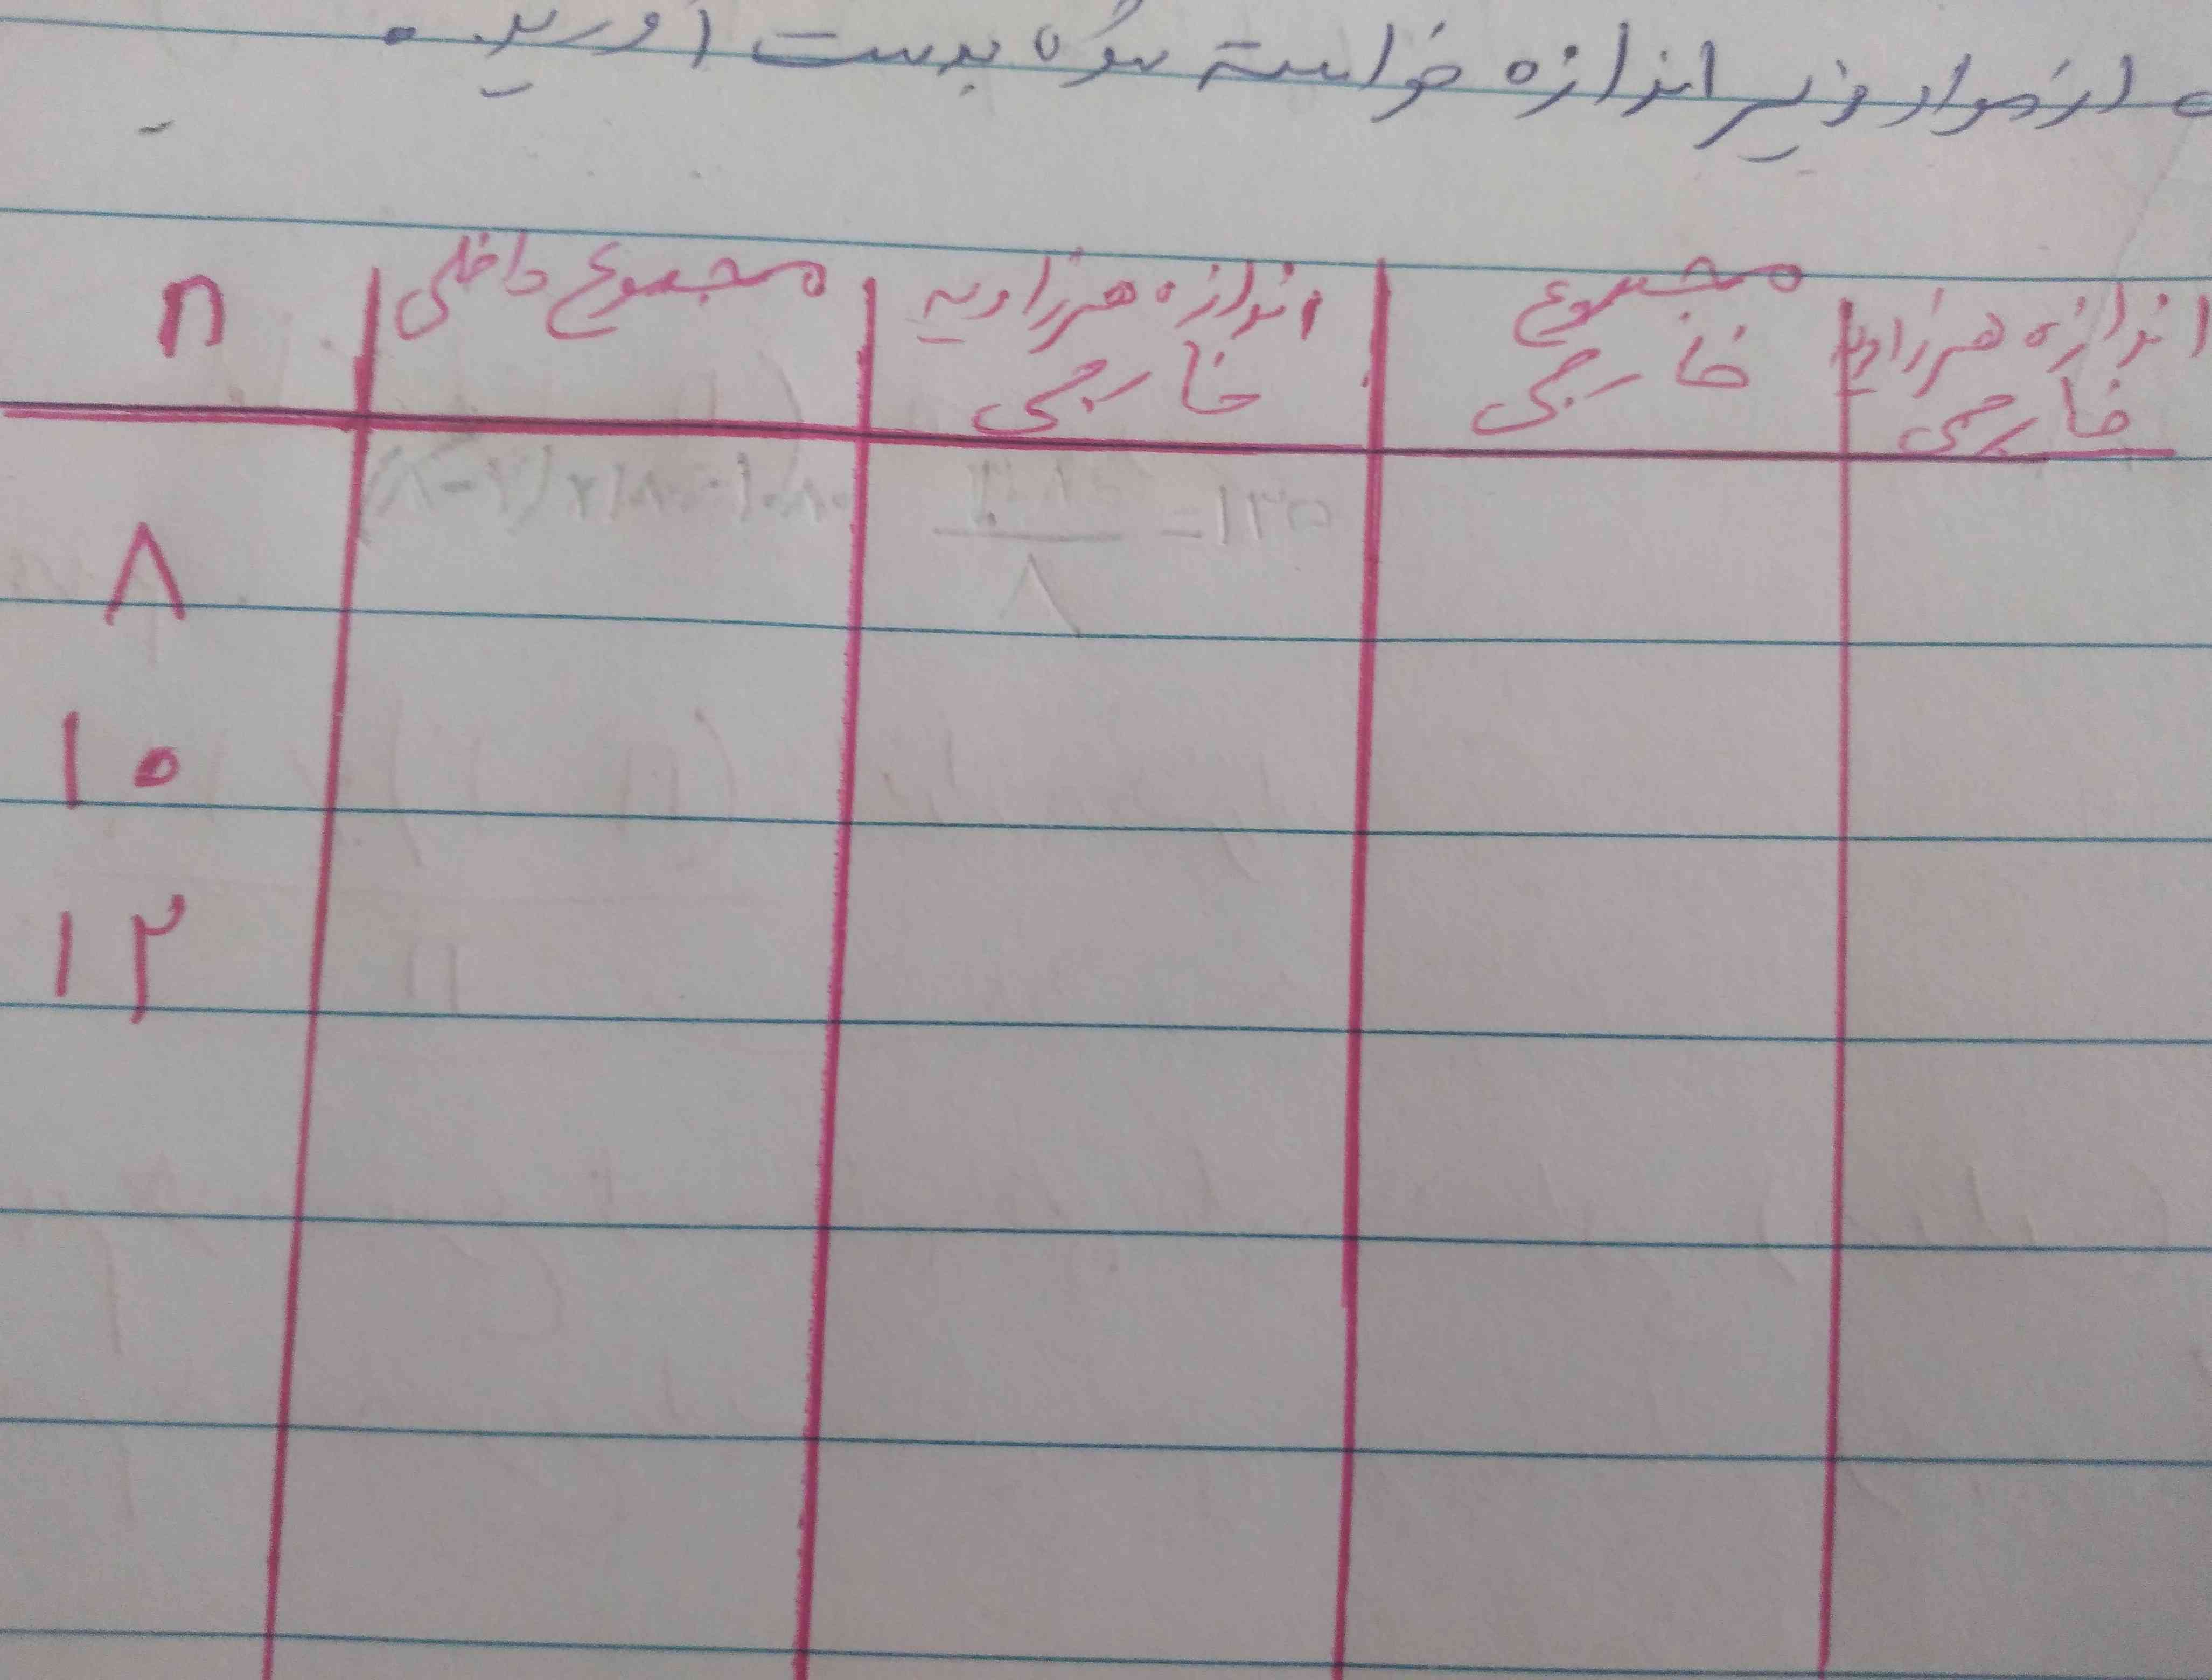 از موارد زیر اندازه خواسته شده بدست آورید.
n مجموع داخلی اندازه هر زاویه خارجی مجموع خارجی اندازه هر زاویه خارجی
۸ (۸-۲)×۱۸۰=۱۰۸۰ ۱۰۸۰/۸ =۱۳۵
۱۰
۱۲